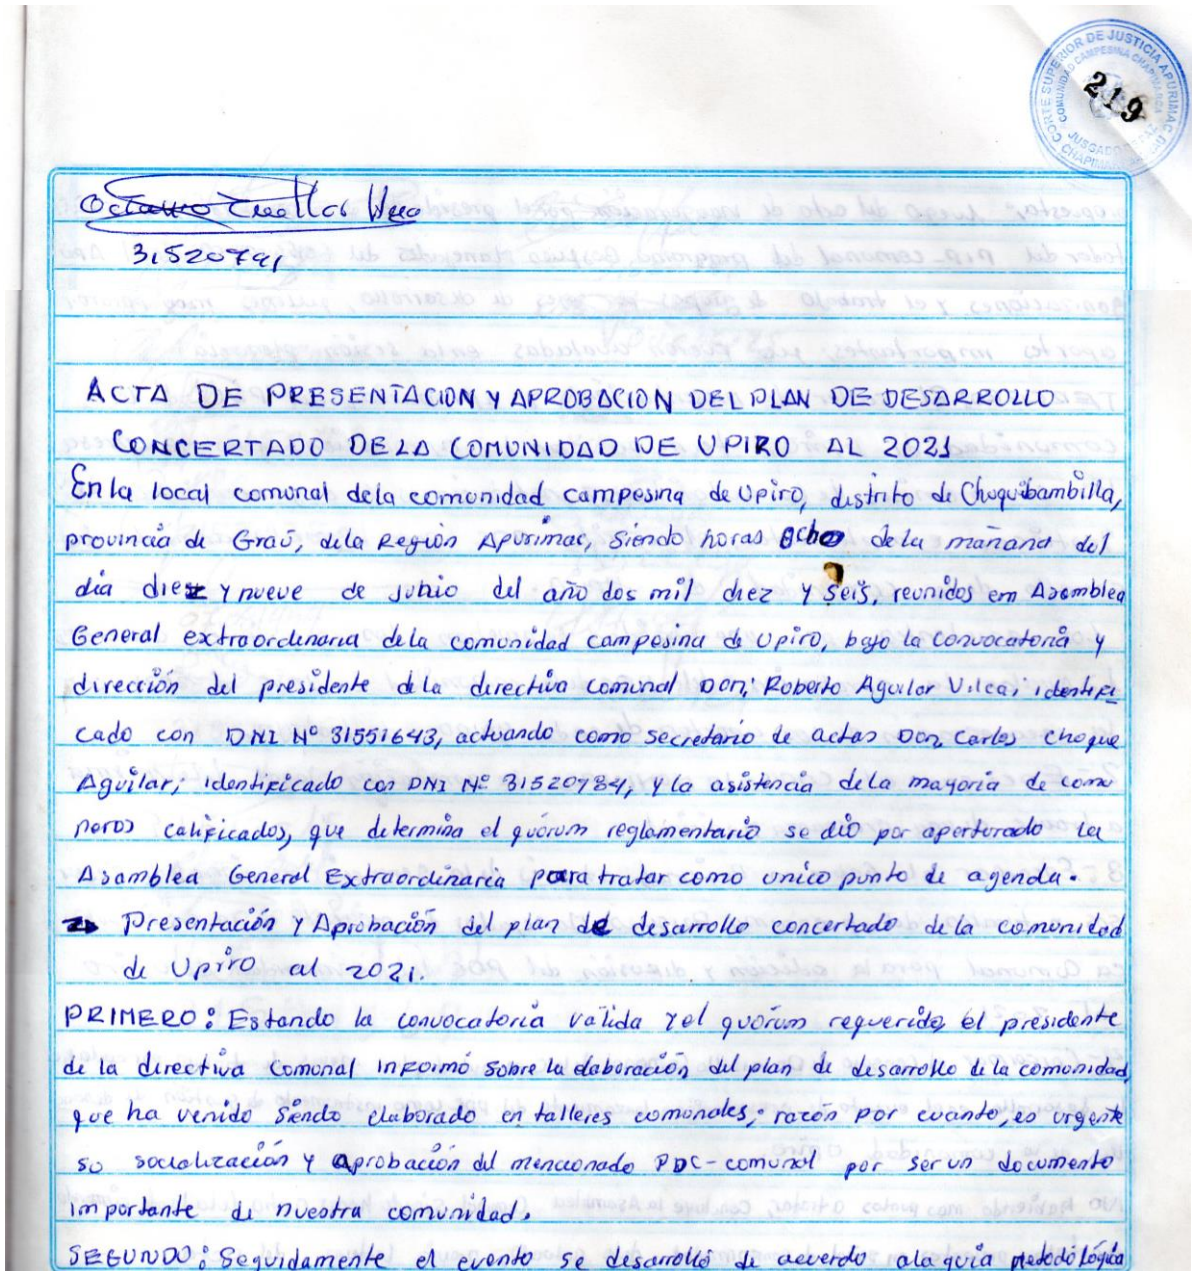 CORTE SUPERIOR DE JUSTICIA APURIMAC
COMUNIDAD CAMPESINA CHAPIMARCA
219
JUSGADO DE PAZ
31520791
ACTA DE PRESENTACION Y APROBACION DEL PLAN DE DESARROLLO
CONCERTADO DE LA COMUNIDAD DE UPIRO AL 2021
En la local comunal dela comunidad campesina de Upiro, distrito de Chuquibambilla,
provincia de Graú, dela Región Apurimac, siendo horas ocho de la mañana del
día diez y nueve de junio del año dos mil diez y seis, reunidos em Asamblea
General extraordinaria dela comunidad campesina de Upiro, bajo la convocatoria y
dirección del presidente dela directiva comunal Don; Roberto Aguilar Vilca; identifi
cado con DNI Nº 31551643, actuando como secretario de actas Don, Carlos Choque
Aguilar; identificado con DNI Nº 31520784, y la asistencia dela mayoría de comu
neros calificados, que determina el quórum reglamentario se dió por aperturado la
Asamblea General Extraordinaria para tratar como unico punto de agenda.
Presentación y Aprobación del plan de desarrollo concertado de la comunidad
de Upiro al 2021.
PRIMERO: Estando la convocatoria valida y el quórum requerido, el presidente
de la directiva Comunal informó sobre la elaboración del plan de desarrollo de la comunidad,
que ha venido siendo elaborado en talleres comunales; razón por cuanto, es urgente
su socialización y aprobación del mencionado PDC-comunal por ser un documento
importante de nuestra comunidad.
SEGUNDO: Seguidamente el evento se desarrolló de acuerdo ala guía metodológica